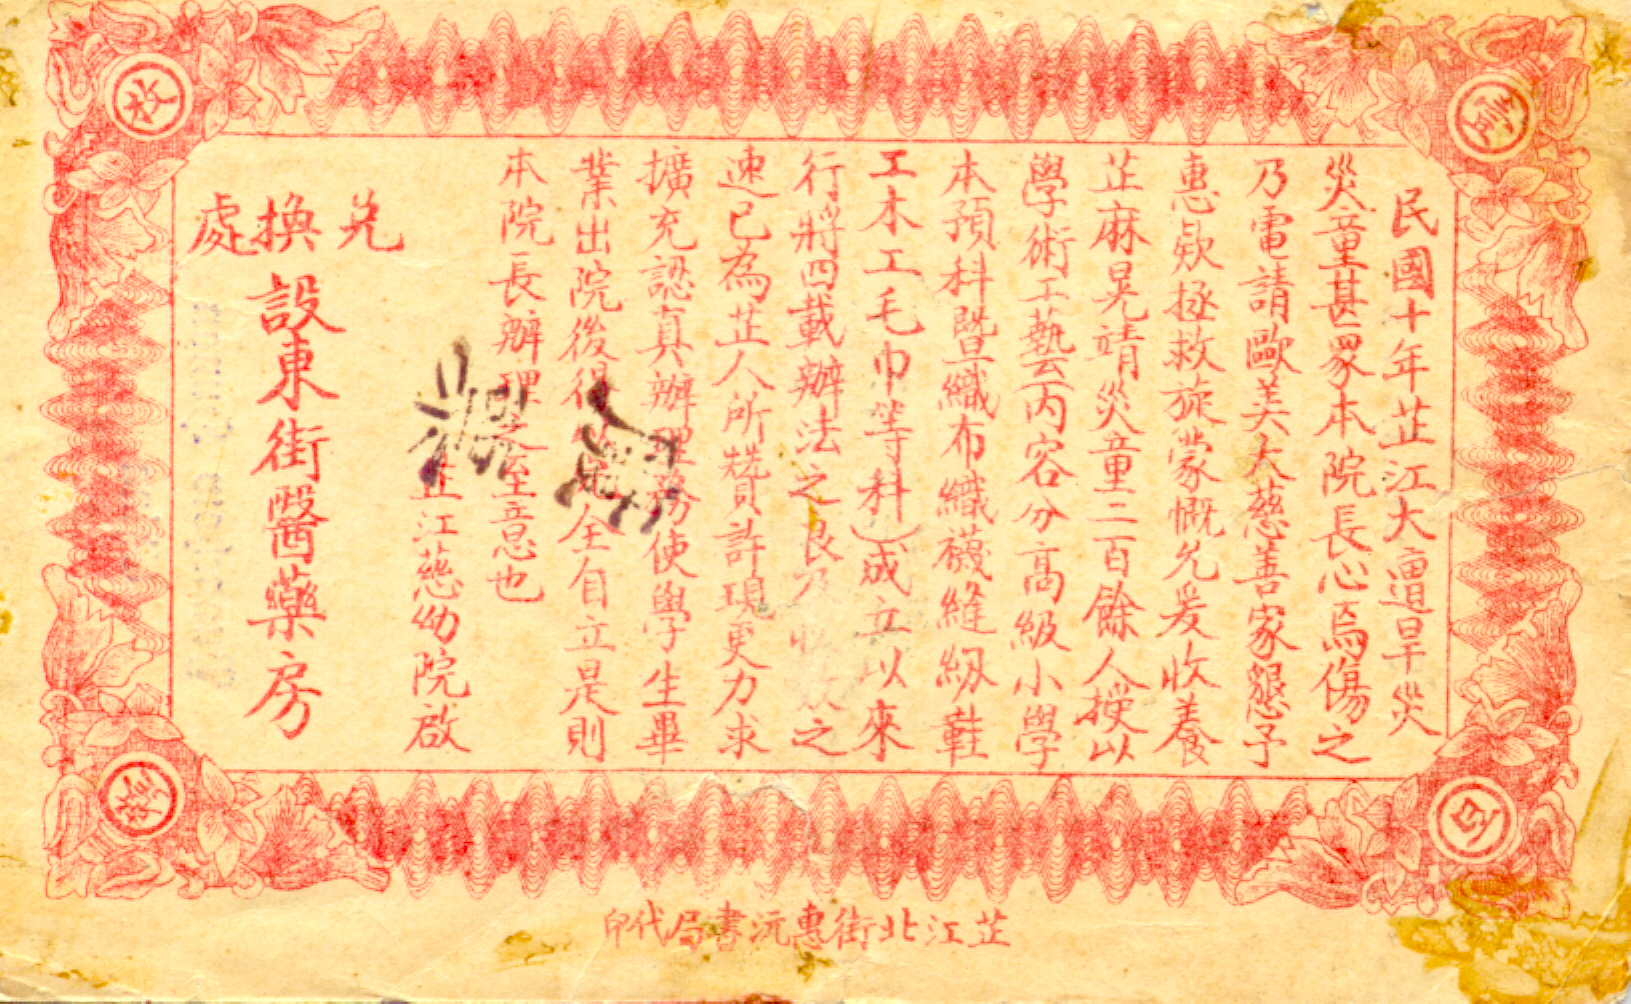 民國十年芷江大遭旱災
災童甚眾本院長心焉傷之
乃電請歐美大慈善家懇予
惠欵拯救旋蒙慨允爰收養
芷麻晃靖災童二百餘人授以
學術工藝內容分高級小學
本預科暨織布織襪縫紉鞋
工木工毛巾等科成立以來
行將四載辦法之良之
速已為芷人所贊許現更力求
擴充認真辦使學生畢
業出院後得全自立是則
本院長辦理之至意也
芷江慈幼院啟
兌換處
設東街醫藥房
壹
枚
芷江北街惠沅書局代印